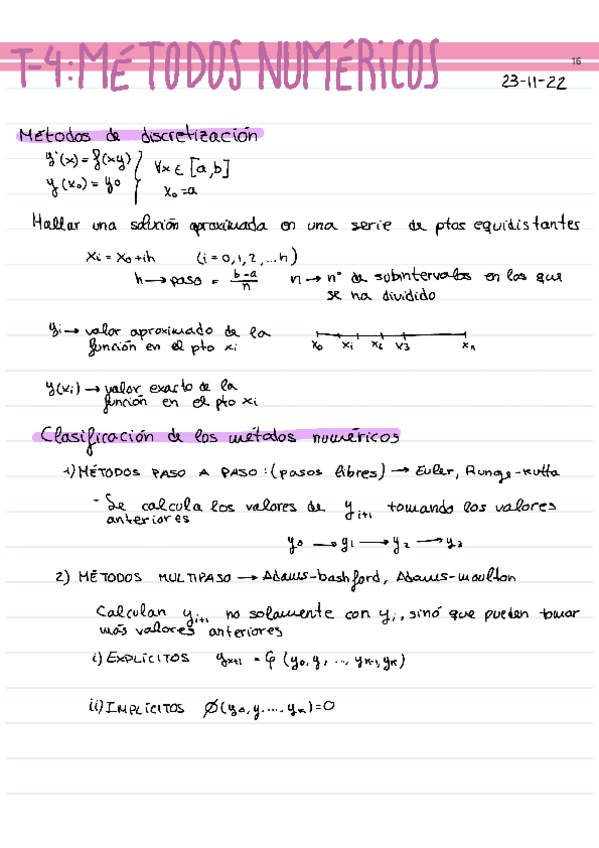 T-4: MÉTODOS NUMÉRICOS
16
23-11-22
Métodos de discretización
y'(x) = f(xy)
y(x0) = y0
∀x ∈ [a,b]
x0 = a
Hallar una solución aproximada en una serie de ptos equidistantes
xi = x0 + ih (i = 0, 1, 2, ... n)
h → paso = b-a/n n → nº de subintervalos en los que
se ha dividido
yi → valor aproximado de la
función en el pto xi
x0 xi x2 x3 xn
y(xi) → valor exacto de la
función en el pto xi
Clasificación de los métodos numéricos
1) MÉTODOS PASO A PASO: (pasos libres) → Euler, Runge-Kutta
- Se calcula los valores de yi+1 tomando los valores
anteriores
y0 → y1 → y2 → y3
2) MÉTODOS MULTIPASO → Adams-bashford, Adams-moulton
Calculan yi+1 no solamente con yi, sinó que pueden tomar
más valores anteriores
i) EXPLÍCITOS yk+1 = φ (y0, y, ..., yk-1, yk)
ii) IMPLÍCITOS Ø(y0, y, ... yk) = 0